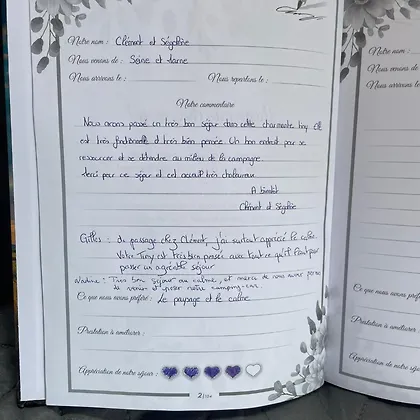 Notre nom : Clément et Ségolène
Nous venons de : Seine et Marne
Nous arrivons le : Nous repartons le :
Notre commentaire
Nous avons passé un très bon séjour dans cette charmante tiny. Elle
est très fonctionnelle et très bien pensée. Un bon endroit pour se
ressourcer et se détendre au milieu de la campagne.
Merci pour ce séjour et cet accueil très chaleureux.
A bientôt
Clément et Ségolène
Gilles : de passage chez Clément, j'ai surtout apprécié le calme.
Votre Tiny est très bien pensée avec tout ce qu'il faut pour
passer un agréable séjour
Nadine : Très bon séjour au calme, et merci de nous avoir permis
de venir et poser notre camping-car.
Ce que nous avons préféré : Le paysage et le calme
Prestation à améliorer :
Appréciation de notre séjour :
2/104
Notre nom :
Nous venons de :
Nous arrivons le
Ce que nous avons préféré
Prestation à améliorer
Appréciation de notre